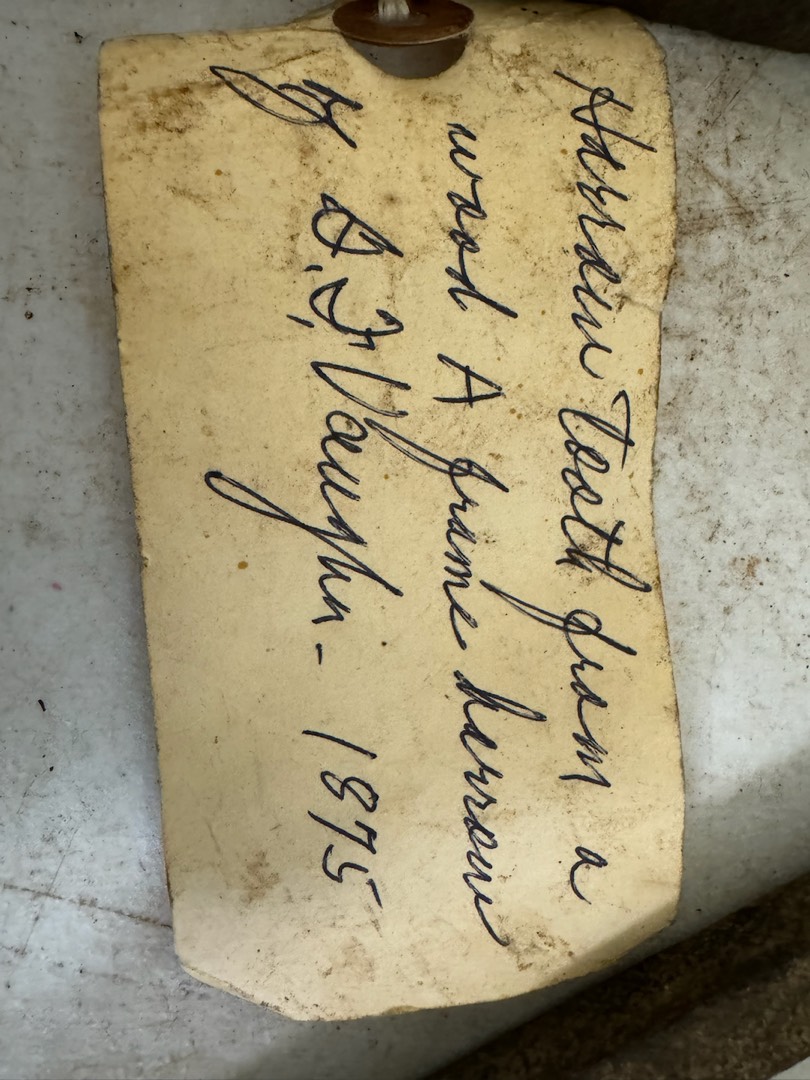 Harrow Tooth from a
wood A frame harrow
by D.F. Vaughn - 1875